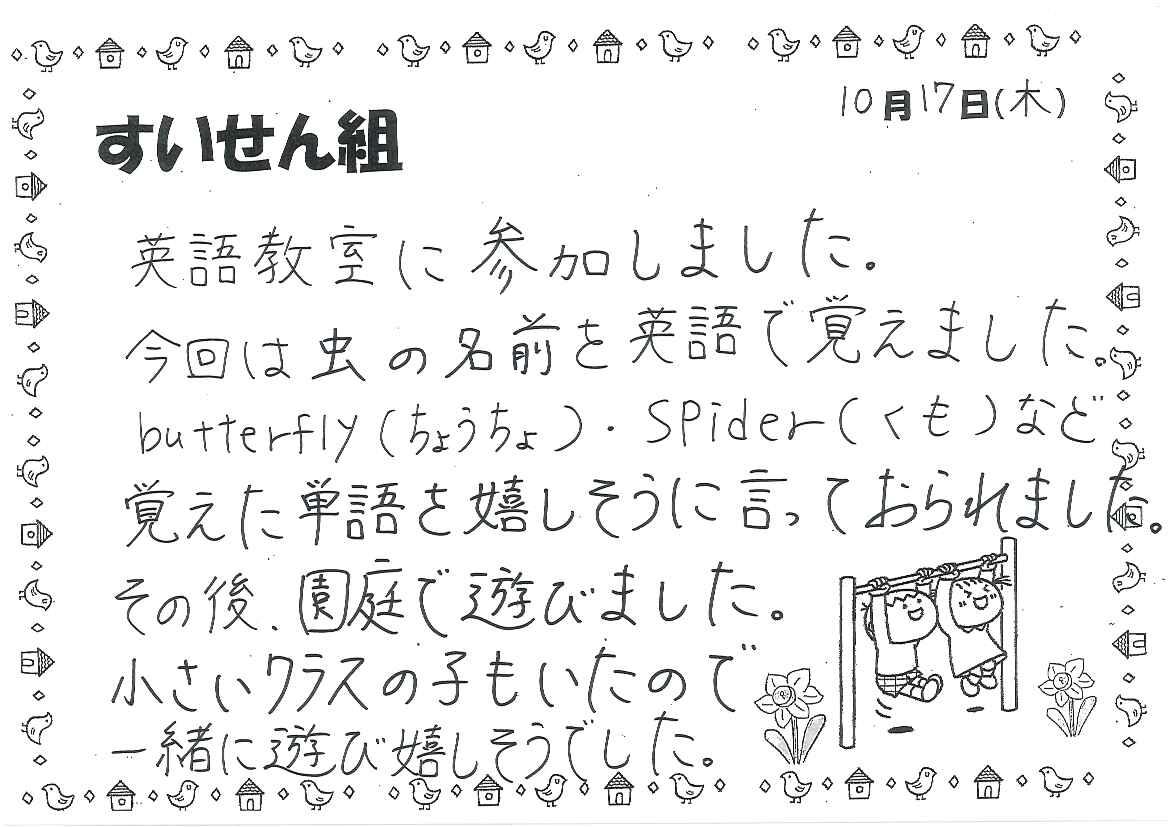 10月17日(木)
すいせん組
英語教室に参加しました。
今回は虫の名前を英語で覚えました。
butterfly(ちょうちょ)・SPider(くも)など
覚えた単語を嬉しそうに言っておられました。
その後、園庭で遊びました。
小さいクラスの子もいたので
一緒に遊び嬉しそうでした。